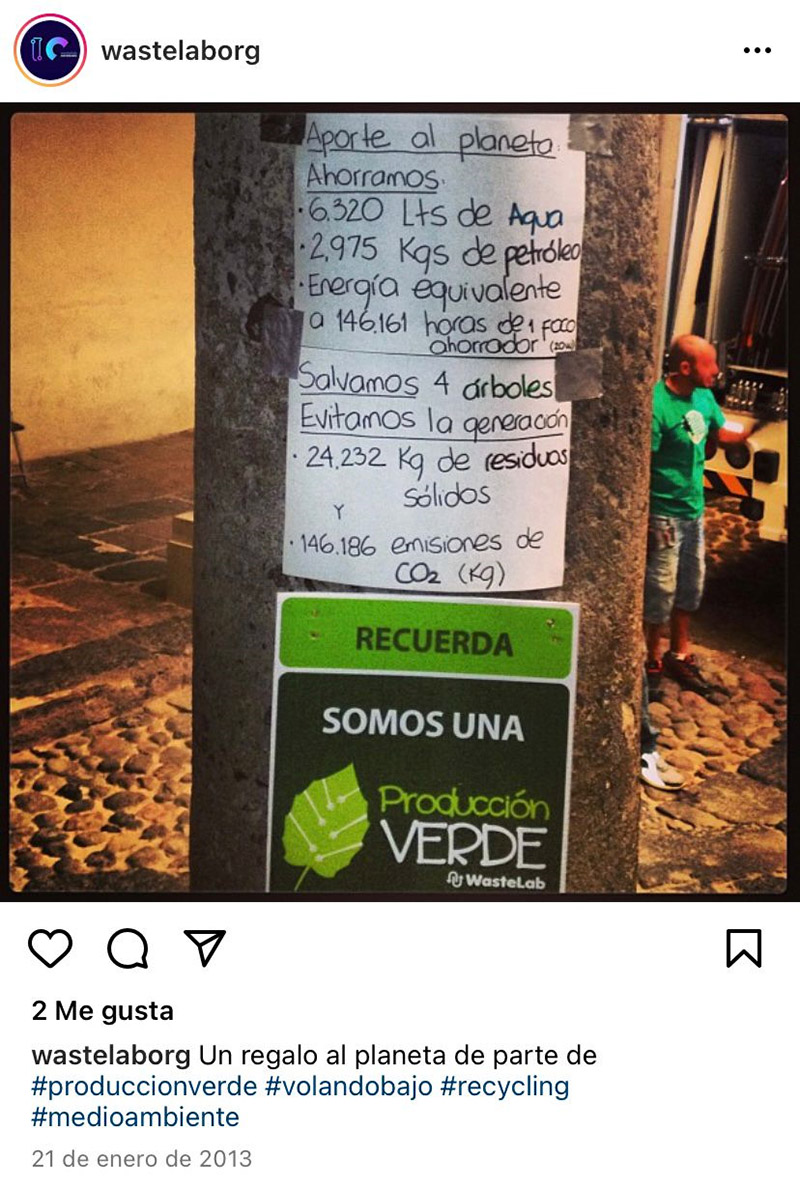 wastelaborg
Aporte al planeta.
Ahorramos.
· 6,320 Lts de Agua
· 2,975 Kgs de petróleo
· Energía equivalente
a 146,161 horas de 1 foco
ahorrador (20w)
Salvamos 4 árboles
Evitamos la generación
· 24,232 Kg de residuos
Sólidos
Y
· 146.186 emisiones de
CO2 (Kg)
RECUERDA
SOMOS UNA
Producción
VERDE
WasteLab
2 Me gusta
wastelaborg Un regalo al planeta de parte de
#produccionverde #volandobajo #recycling
#medioambiente
21 de enero de 2013